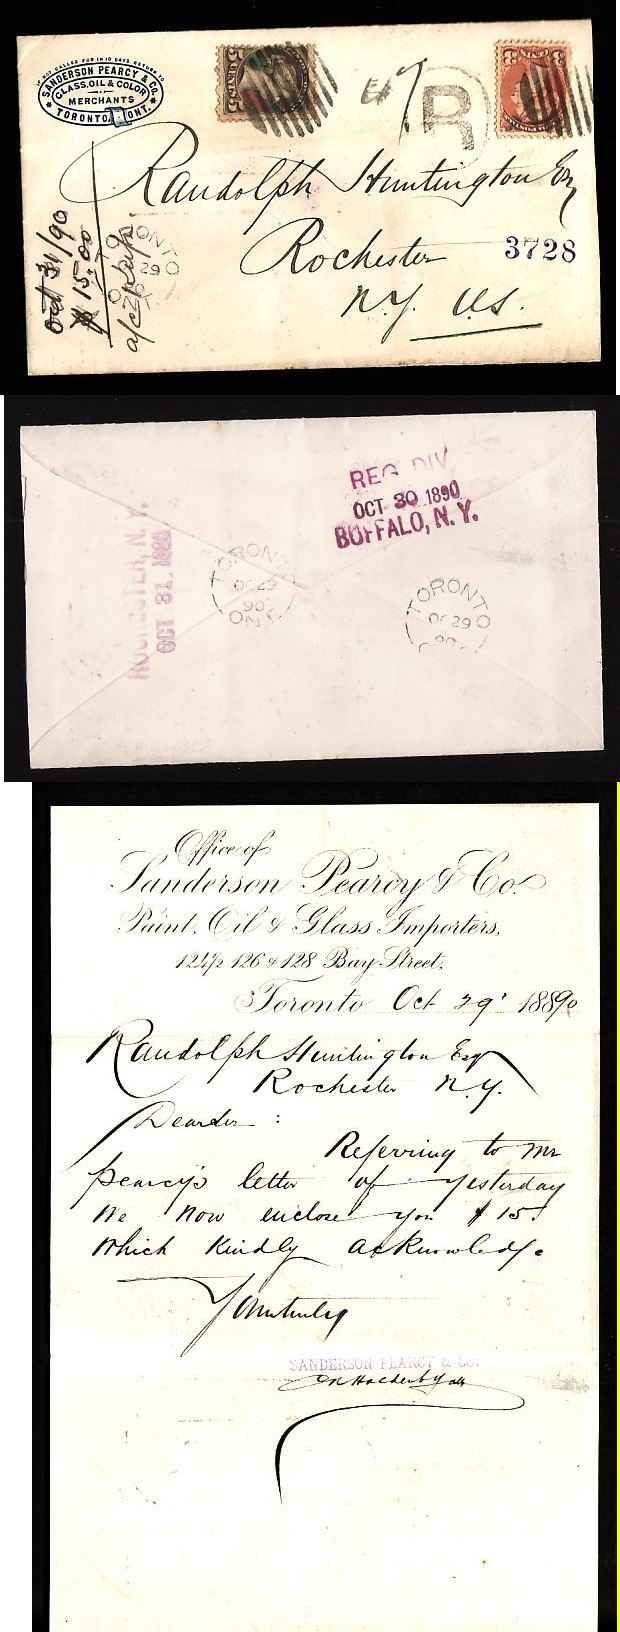 IF NOT CALLED FOR IN 10 DAYS RETURN TO
SANDERSON PEARCY & CO.
GLASS, OIL & COLOR
MERCHANTS
TORONTO, ONT.
5 CENTS 5
3 3
R
Randolph Huntington Esq
Rochester
3728
N.Y. U.S.
Oct 31/90
$15.00
TORONTO
OC 29
90
REG. DIV
OCT 30 1890
BUFFALO, N.Y.
ROCHESTER, N.Y.
OCT 31 1890
TORONTO
OC 29
90
ONT
TORONTO
OC 29
90
Office of
Sanderson Pearcy & Co.
Paint, Oil & Glass Importers,
124½ 126 & 128 Bay Street,
Toronto Oct 29' 1890
Randolph Huntington Esq
Rochester N.Y.
Dear Sir :
Referring to Mr
Pearcy's letter of yesterday
we now enclose you $15.
which kindly acknowledge
Yours truly
SANDERSON PEARCY & CO.